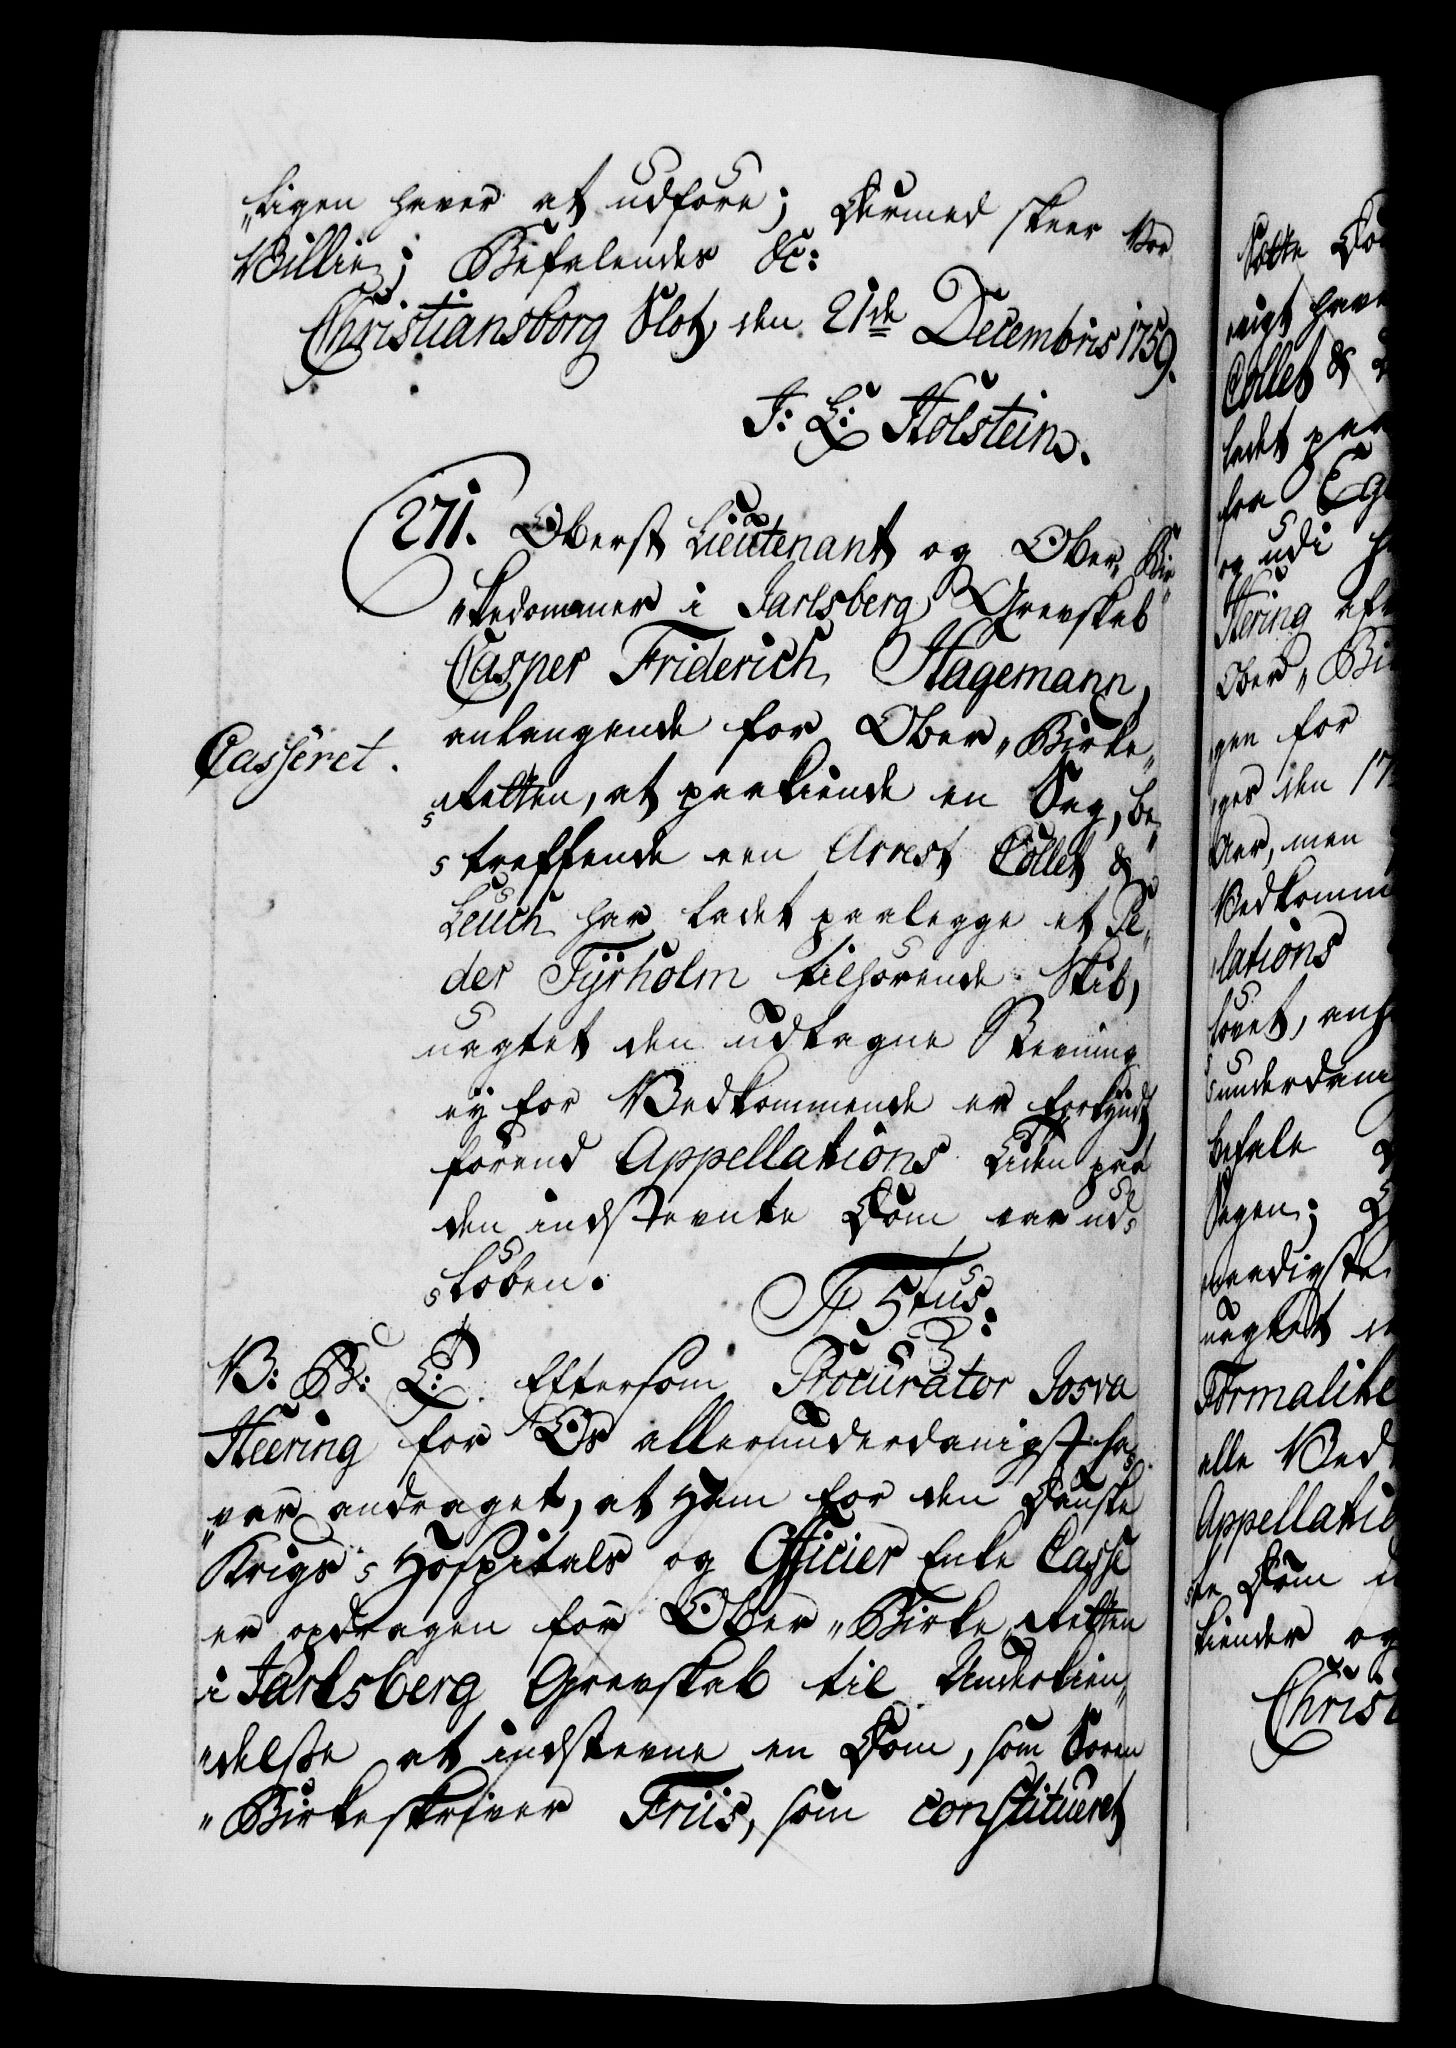 "ligen haver at udføre; Dermed skeer Vor
Villie; Befalendes &c:
Christiansborg Slot, den 21de Decembris 1759.
J: L: Holstein.
271. Oberst Lieutenant og Ober-Bir-
"kedommer i Jarlsberg Grevskab
Casper Friderich Hagemann,
anlangende for Ober-Birke-
Casseret.
Retten, at paakiende en Sag, be-
treffende een Arrest Collet &
Leuch har ladet paalegge et Pe-
der Tÿrholm tilhørende Skib,
uagtet den udtagne Stevning
eÿ for Vedkommende er forkÿndt
førend Appellations Tiden paa
den indstevnte Dom var ud-
løben.
F 5tus.
V: B: G: Eftersom Procurator Josva
Heering for Os allerunderdanigst ha-
ver andraget, at Ham for den Danske
Krigs-Hospitals og Officier Enke Casse
er opdragen for Ober-Birke Retten
i Jarlsberg Grevskab til Underkien-
delsse at indstevne en Dom, som Soren-
Birkeskriver Friis, som constitueret
Sætte Do
Collet &
ladet paa
fra
og udi
Hering
Ober-Bi
gen for
ges den 17
Aar, men
Vedkomm
lations
løbet,
underdani
befale
Sagen;
uagtet
Formalite
alle Ved
Appellatio
te Dom
kiender og
Christ